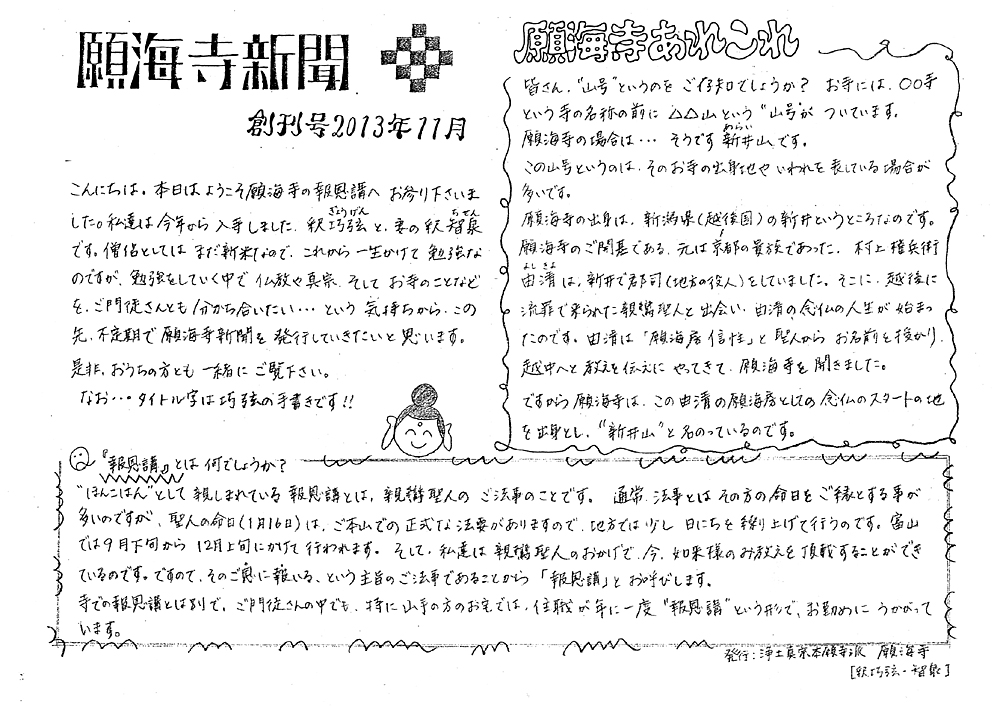 願海寺新聞
創刊号2013年11月
こんにちは。本日はようこそ願海寺の報恩講へ お参り下さいま
した。私達は今年から 入寺しました、釈巧弦と、妻の釈智泉
ぎょうげん
ちせん
です。僧侶としては まだ新米なので、これから一生かけて 勉強な
のですが、勉強をしていく中で 仏教や真宗、そして お寺のことなど
を、ご門徒さんとも 分かち合いたい…という 気持ちから、この
先、不定期で願海寺新聞を 発行していきたいと思います。
是非、おうちの方とも 一緒に ご覧下さい。
なお…タイトル字は巧弦の手書きです!!
願海寺あれこれ
皆さん、"山号"というのを ご存知でしょうか? お寺には、〇〇寺
という寺の名称の前に △△山という "山号"が ついています。
願海寺の場合は… そうです 新井山、です。
あらい
この山号というのは、そのお寺の出身地や いわれを 表している場合が
多いです。
願海寺の出身は、新潟県(越後国)の新井というところなのです。
願海寺のご開基である、元は京都の貴族であった、村上権兵衛
由清は、新井で郡司(地方の役人)をしていました。そこに、越後に
よしきよ
流罪で来られた親鸞聖人と出会い、由清の念仏の人生が 始まっ
たのです。由清は「願海房信性」と 聖人から お名前を授かり、
越中へと 教えを伝えに やってきて、願海寺を 開きました。
ですから 願海寺は、この由清の願海房としての 念仏のスタートの地
を 出身とし、"新井山"と 名のっているのです。
『報恩講』とは 何でしょうか?
"ほんこはん"として 親しまれている 報恩講とは、親鸞聖人の ご法事のことです。 通常、法事とは その方の命日を ご縁とする事が
多いのですが、聖人の命日(1月16日)は、ご本山での 正式な法要がありますので、地方では少し 日にちを 繰り上げて行うのです。富山
では 9月下旬から 12月上旬にかけて 行われます。そして、私達は 親鸞聖人のおかげで、今、如来様のみ教えを 頂戴することができ
ているのです。ですので、そのご恩に報いる、という主旨のご法事であることから「報恩講」と お呼びします。
寺での報恩講とは別で、ご門徒さんの中でも、特に山手の方のお宅では、住職が年に一度 "報恩講" という形で、お勤めに うかがって
います。
発行:浄土真宗本願寺派 願海寺
[釈巧弦・智泉]